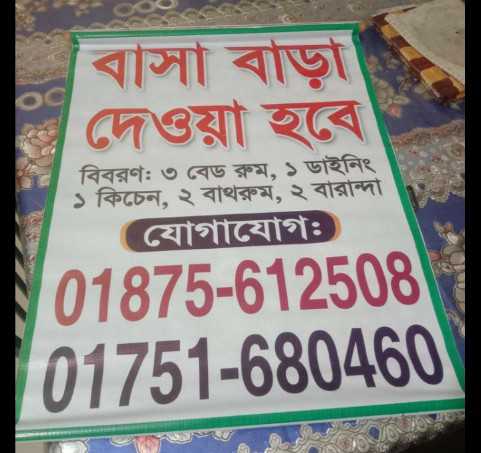 বাসা বাড়া
দেওয়া হবে
বিবরণ: ৩ বেড রুম, ১ ডাইনিং
১ কিচেন, ২ বাথরুম, ২ বারান্দা
যোগাযোগ:
01875-612508
01751-680460